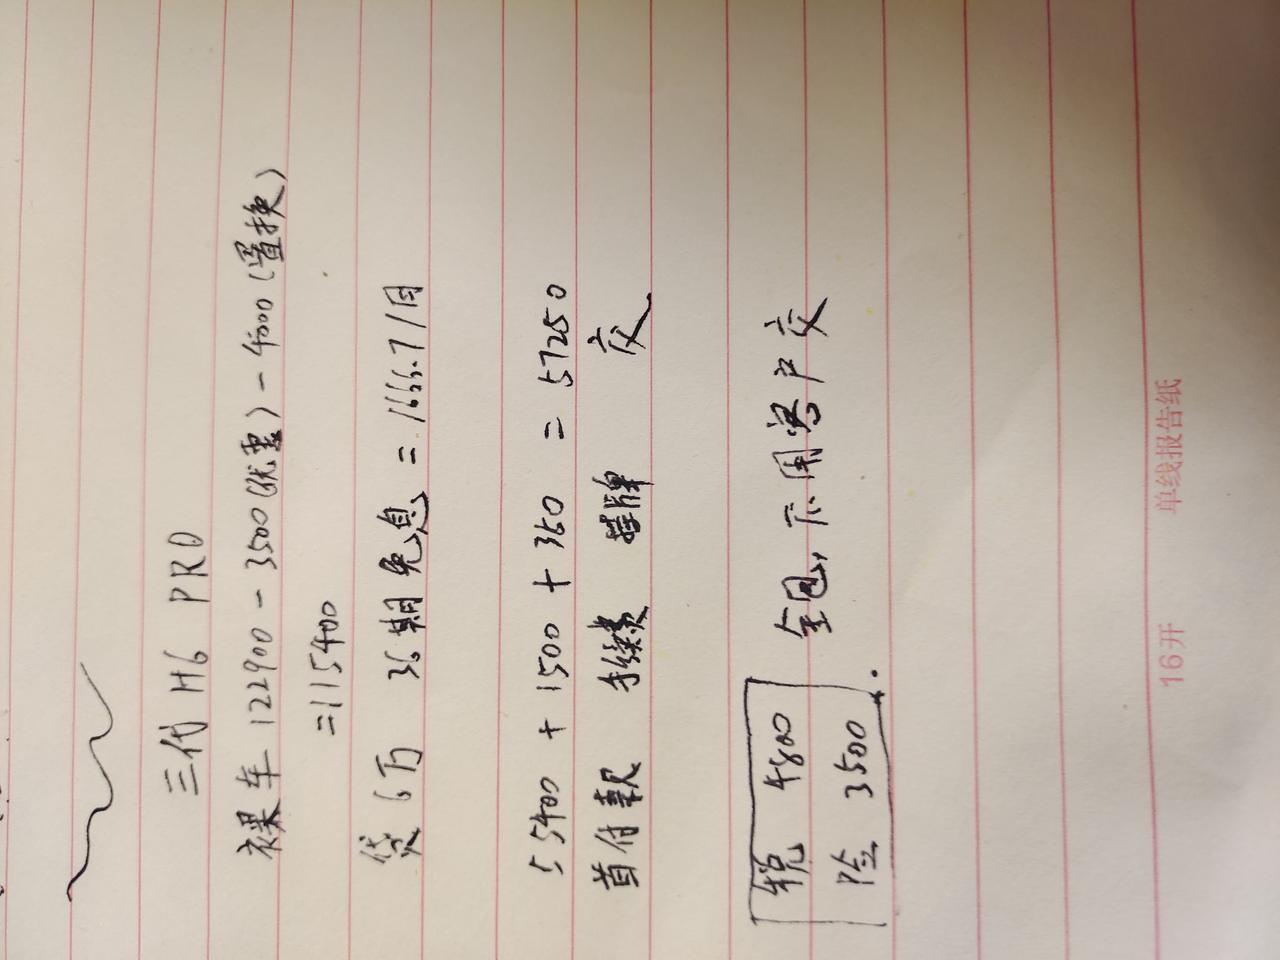 三代 H6 PRO
裸车 122900 - 3500(优惠) - 4000(置换)
=115400
贷6万 36期免息 = 1666.7/月
55400 + 1500 + 350 = 57250
首付款 手续费 挂牌 交
税 4800
险 3500
全包, 不用客户交
16开 单线报告纸